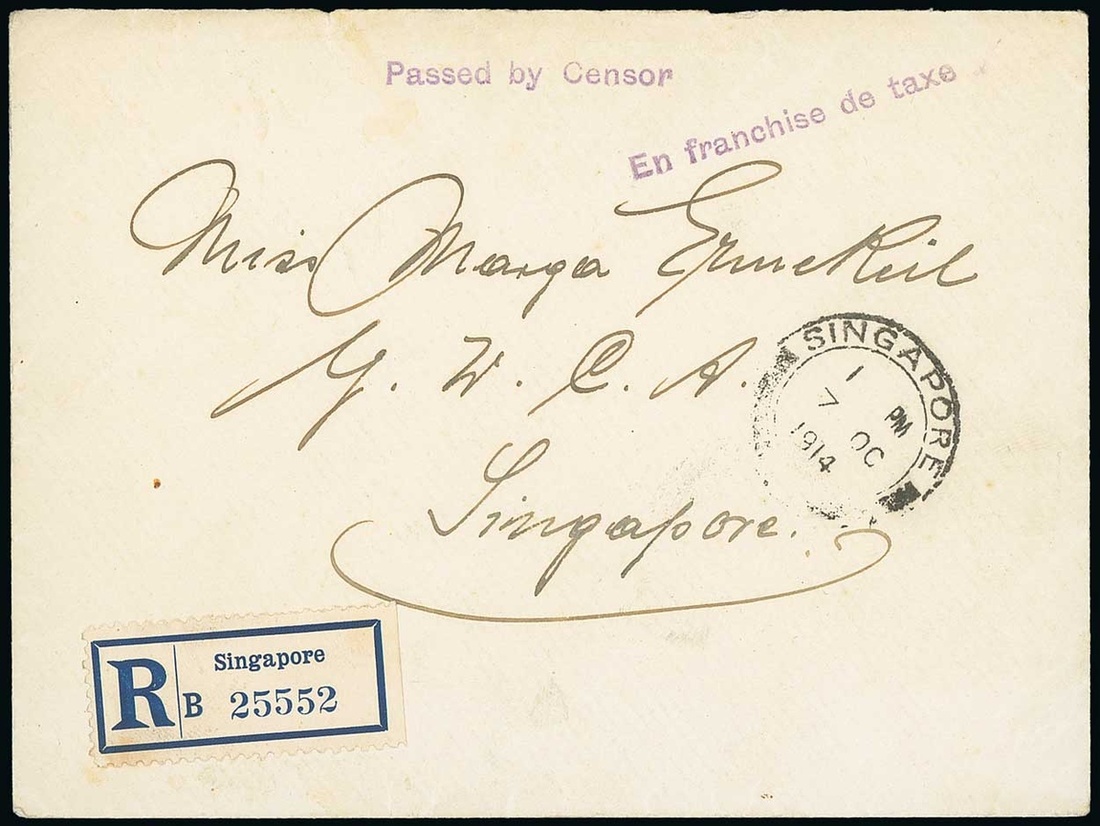 Passed by Censor
En franchise de taxe
Miss Marga Ermekeil
Y. W. C. A.
Singapore.
SINGAPORE
1 PM
7 OC
1914
R
Singapore
B 25552